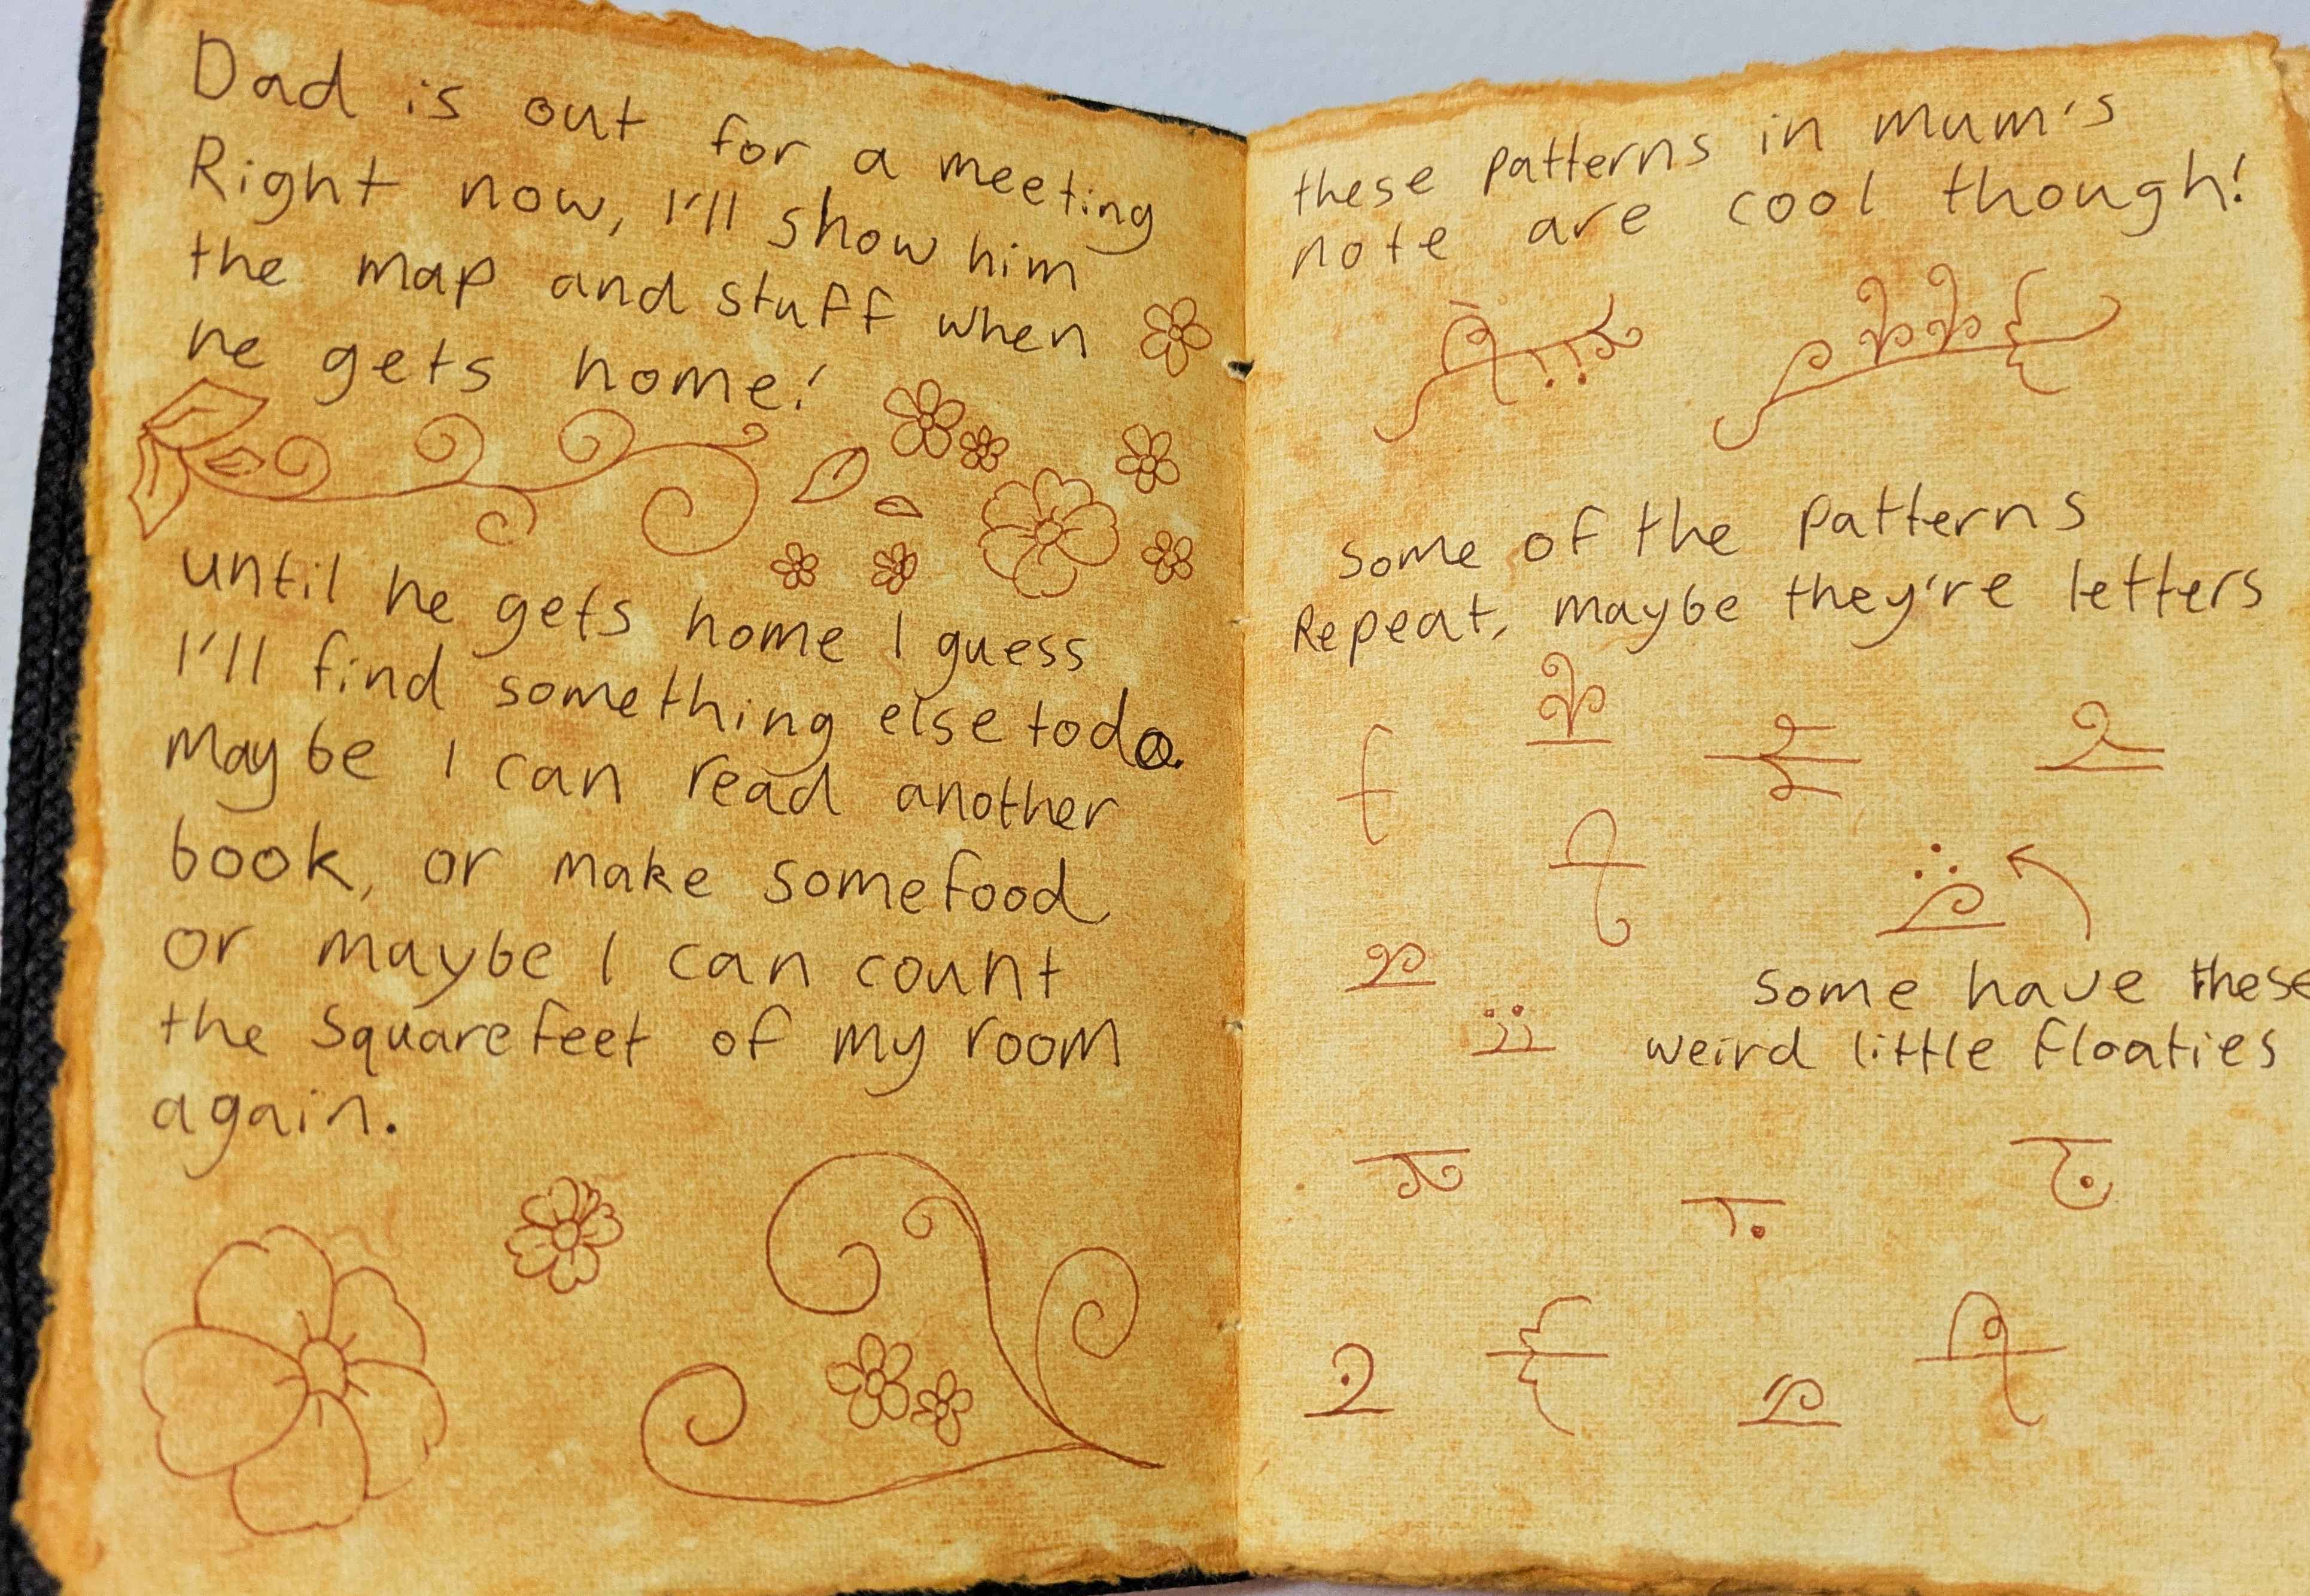 Dad is out for a meeting
Right now, I'll show him
the map and stuff when
he gets home!
until he gets home I guess
I'll find something else to do.
Maybe I can read another
book, or make some food
or maybe I can count
the square feet of my room
again.
these patterns in mum's
note are cool though!
some of the patterns
Repeat, maybe they're letters
some have these
weird little floaties